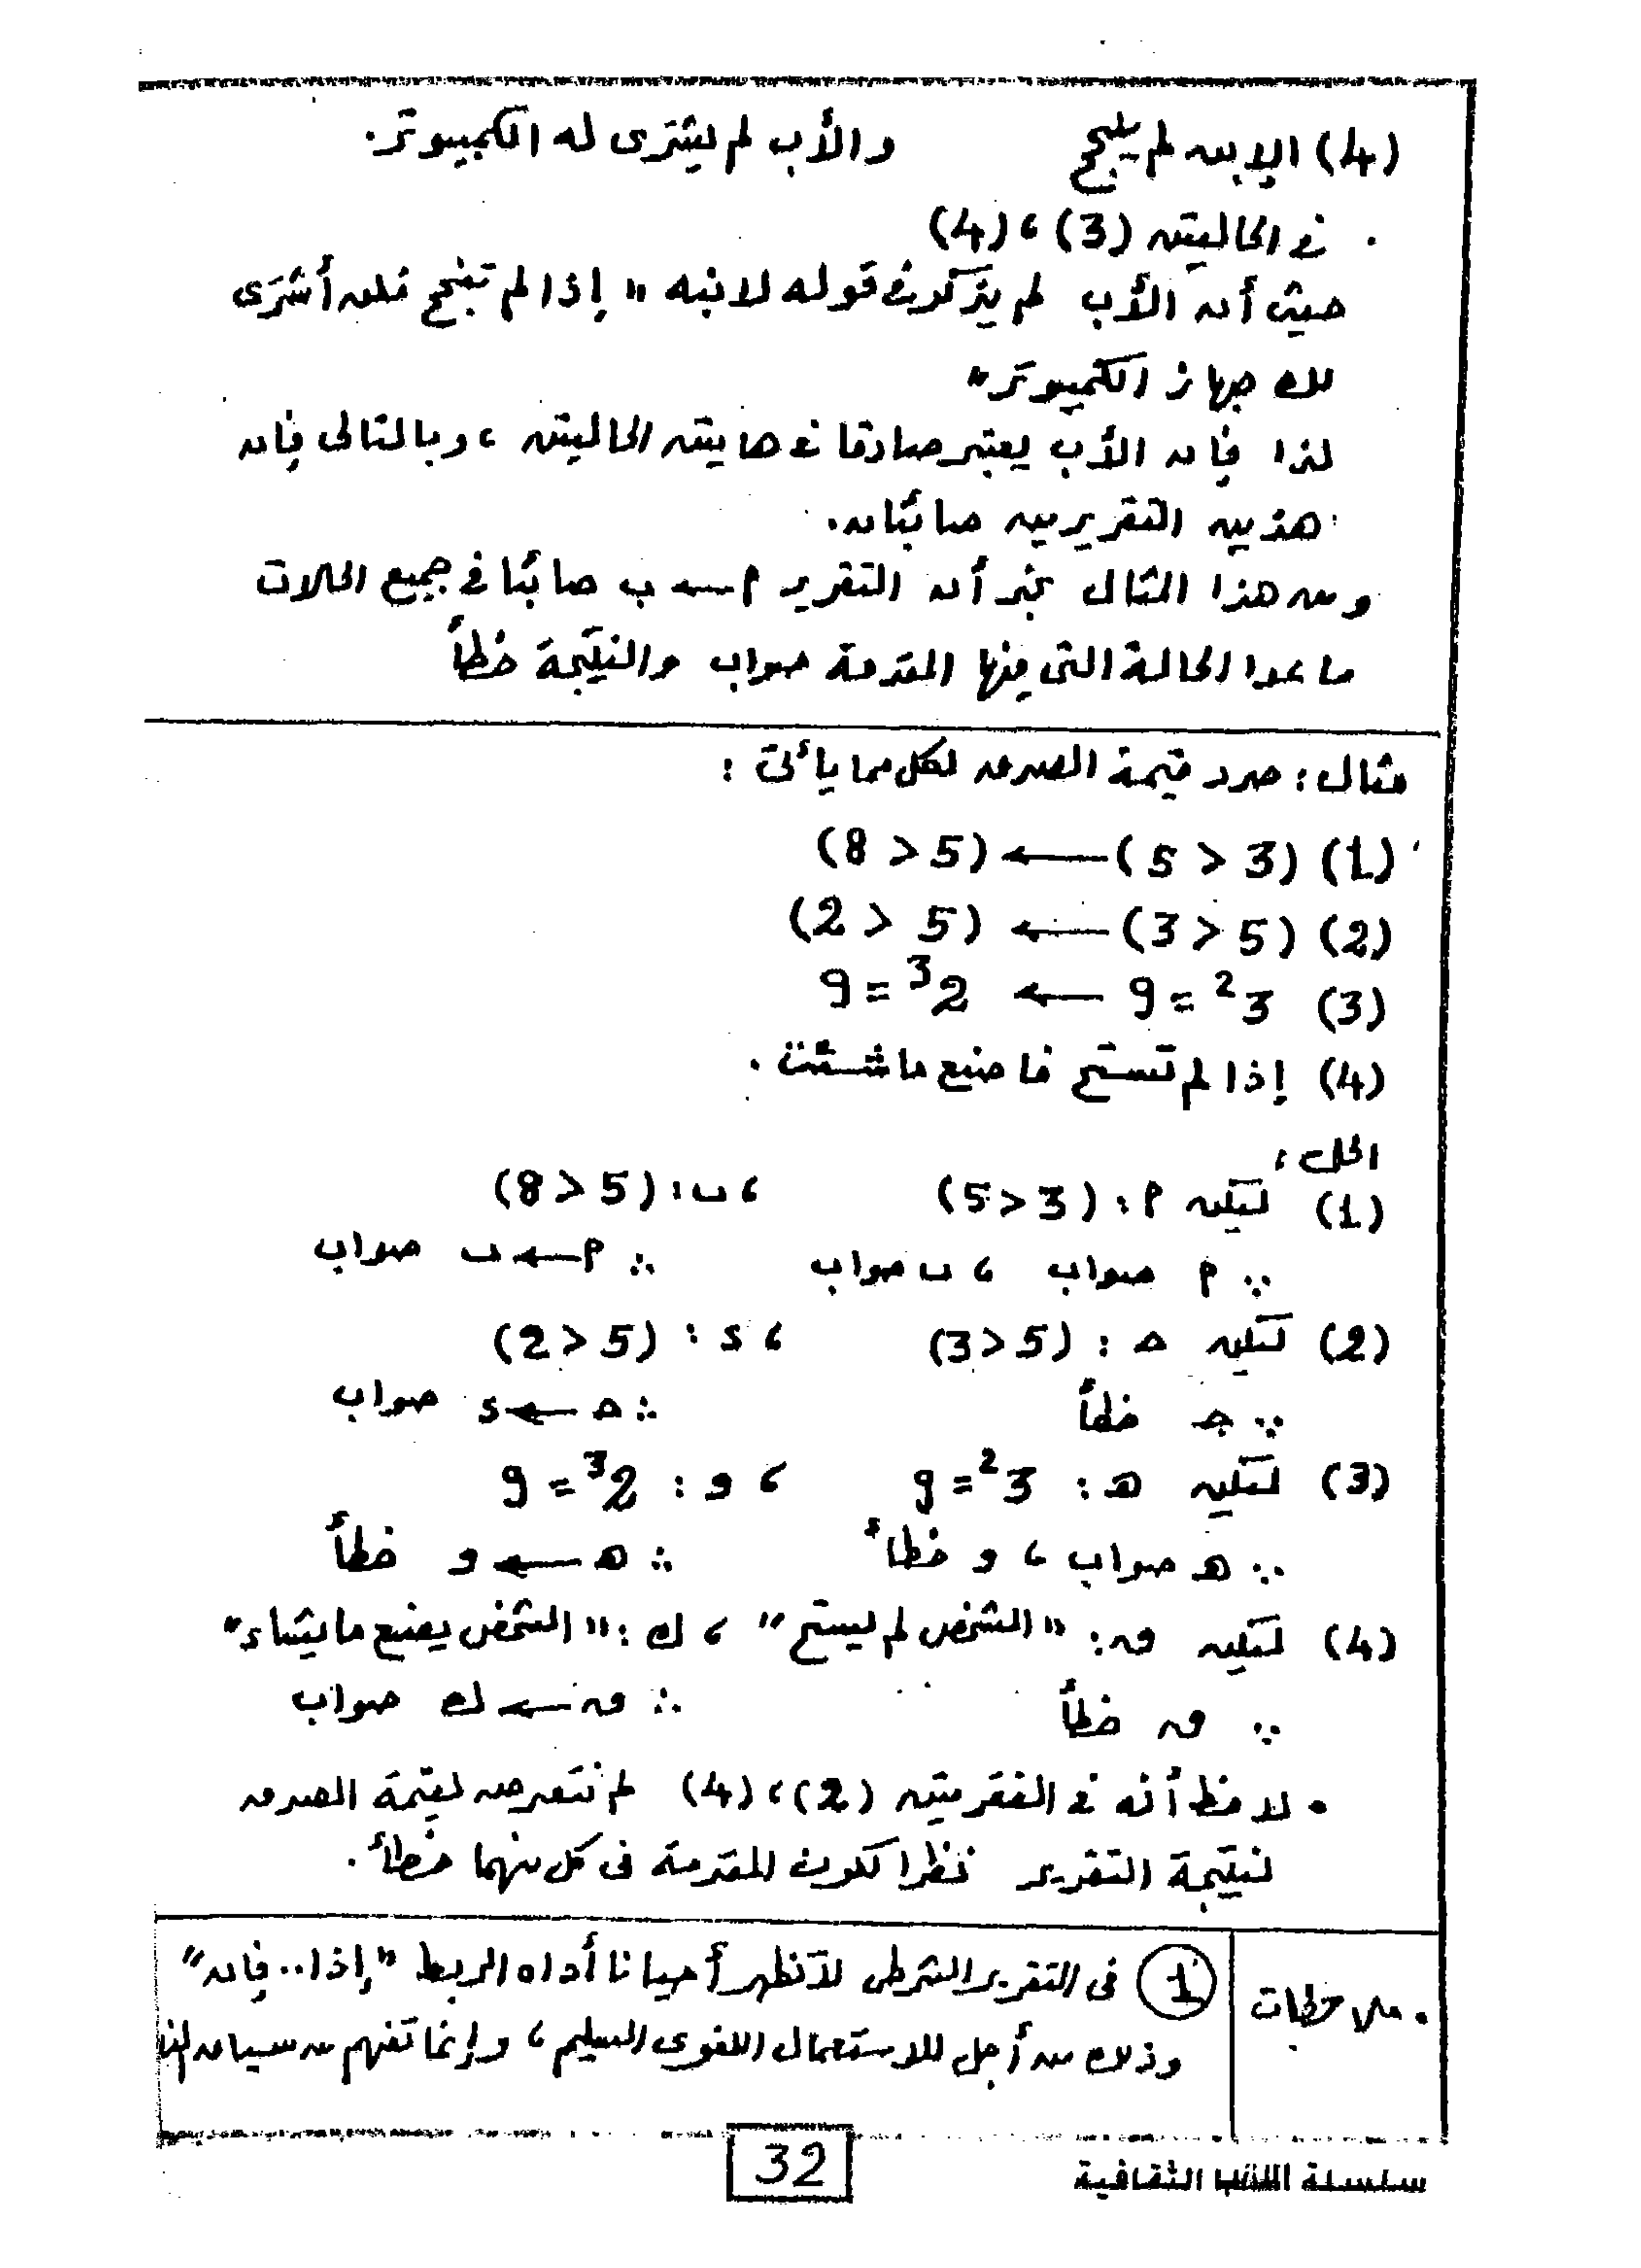 (4) الابن لم ينجح والأب لم يشترى له الكمبيوتر.
. فى الحالتين (3) ، (4)
حيث أن الأب لم يذكر فى قوله لابنه " إذا لم تنجح فلن أشترى
لك جهاز الكمبيوتر "
لذا فإن الأب يعتبر صادقا فى هاتين الحالتين ، وبالتالى فإن
هذين التقريرين صائبان.
ومن هذا المثال نجد أن التقرير م ← ب صائبا فى جميع الحالات
ما عدا الحالة التى فيها المقدمة صواب والنتيجة خطأ
مثال : حدد قيمة الصدق لكل مما يأتى :
(1) (5 > 3) ← (8 > 5)
(2) (3 > 5) ← (2 > 5)
(3) 3² = 9 ← 2³ = 9
(4) إذا لم تستح فاصنع ما شئت .
الحل :
(1) لتكن م : (5 > 3) ، ب : (8 > 5)
∵ م صواب ، ب صواب ∴ م ← ب صواب
(2) لتكن حـ : (3 > 5) ، د : (2 > 5)
∵ جـ خطأ ∴ حـ ← د صواب
(3) لتكن هـ : 3² = 9 ، و : 2³ = 9
∵ هـ صواب ، و خطأ ∴ هـ ← و خطأ
(4) لتكن ن : " الشخص لم يستح " ، ك : " الشخص يصنع ما يشاء "
∵ ن خطأ ∴ ن ← ك صواب
• لاحظ أنه فى الفقرتين (2) ، (4) لم نتعرض لقيمة الصدق
لنتيجة التقرير نظرا لكون المقدمة فى كل منهما خطأ .
• ملاحظات
(1) فى التقرير الشرطى لا تظهر أحيانا أداه الربط " إذا .. فإن "
وذلك من أجل للاستعمال اللغوى السليم ، وإنما تفهم من سياق
32
سلسلة الثقافية